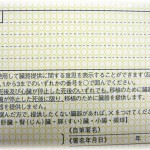 用して臓器提供に関する意思を表示することができます(記
1から3までのいずれかの番号を○で囲んでください。
死後及び心臓が停止した死後のいずれでも、移植の為に臓器
が停止した死後に限り、移植の為に臓器を提供
提供しません。
選んだ方で、提供したくない臓器があれば、×をつけてくだ
肝臓・腎(じん)臓・膵(すい)臓・小腸・眼球】
《自筆署名》
《署名年月日》